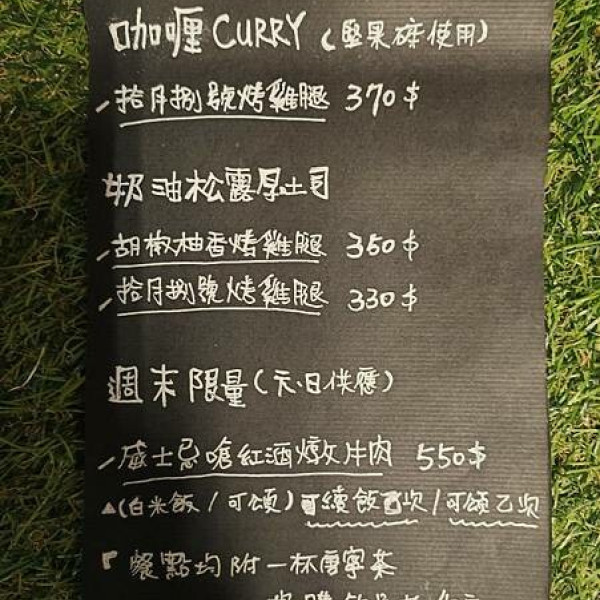 咖喱 CURRY (堅果碎使用)
拾月捌號烤雞腿 370$
奶油松露厚土司
胡椒柚香烤雞腿 350$
拾月捌號烤雞腿 330$
週末限量(六.日供應)
威士忌嗆紅酒燉牛肉 550$
▲(白米飯/可頌)可續飯乙次/可頌乙次
『餐點均附一杯唐寧茶